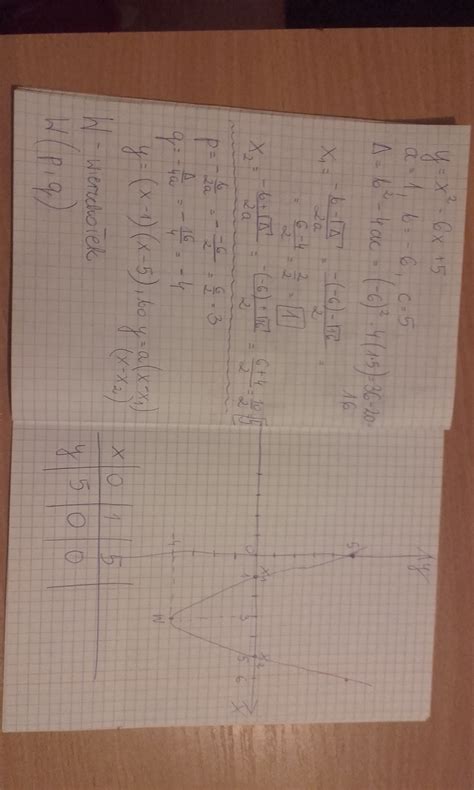 y = x² - 6x + 5
a = 1, b = -6, c = 5
Δ = b² - 4ac = (-6)² - 4(1·5) = 36 - 20 =
16
x₁ = -b-√Δ/2a = -(-6)-√16/2 =
= 6-4/2 = 2/2 = 1
x₂ = -b+√Δ/2a = -(-6)+√16/2 = 6+4/2 = 10/2
p = -b/2a = - -6/2 = 6/2 = 3
q = -Δ/4a = -16/4 = -4
y = (x-1)(x-5), bo y = a(x-x₁)
(x-x₂)
W - wierzchołek
W(p, q)
y
5
0 1 x₁ 3 5 x₂ 6 x
-4
W
x 0 1 5
y 5 0 0